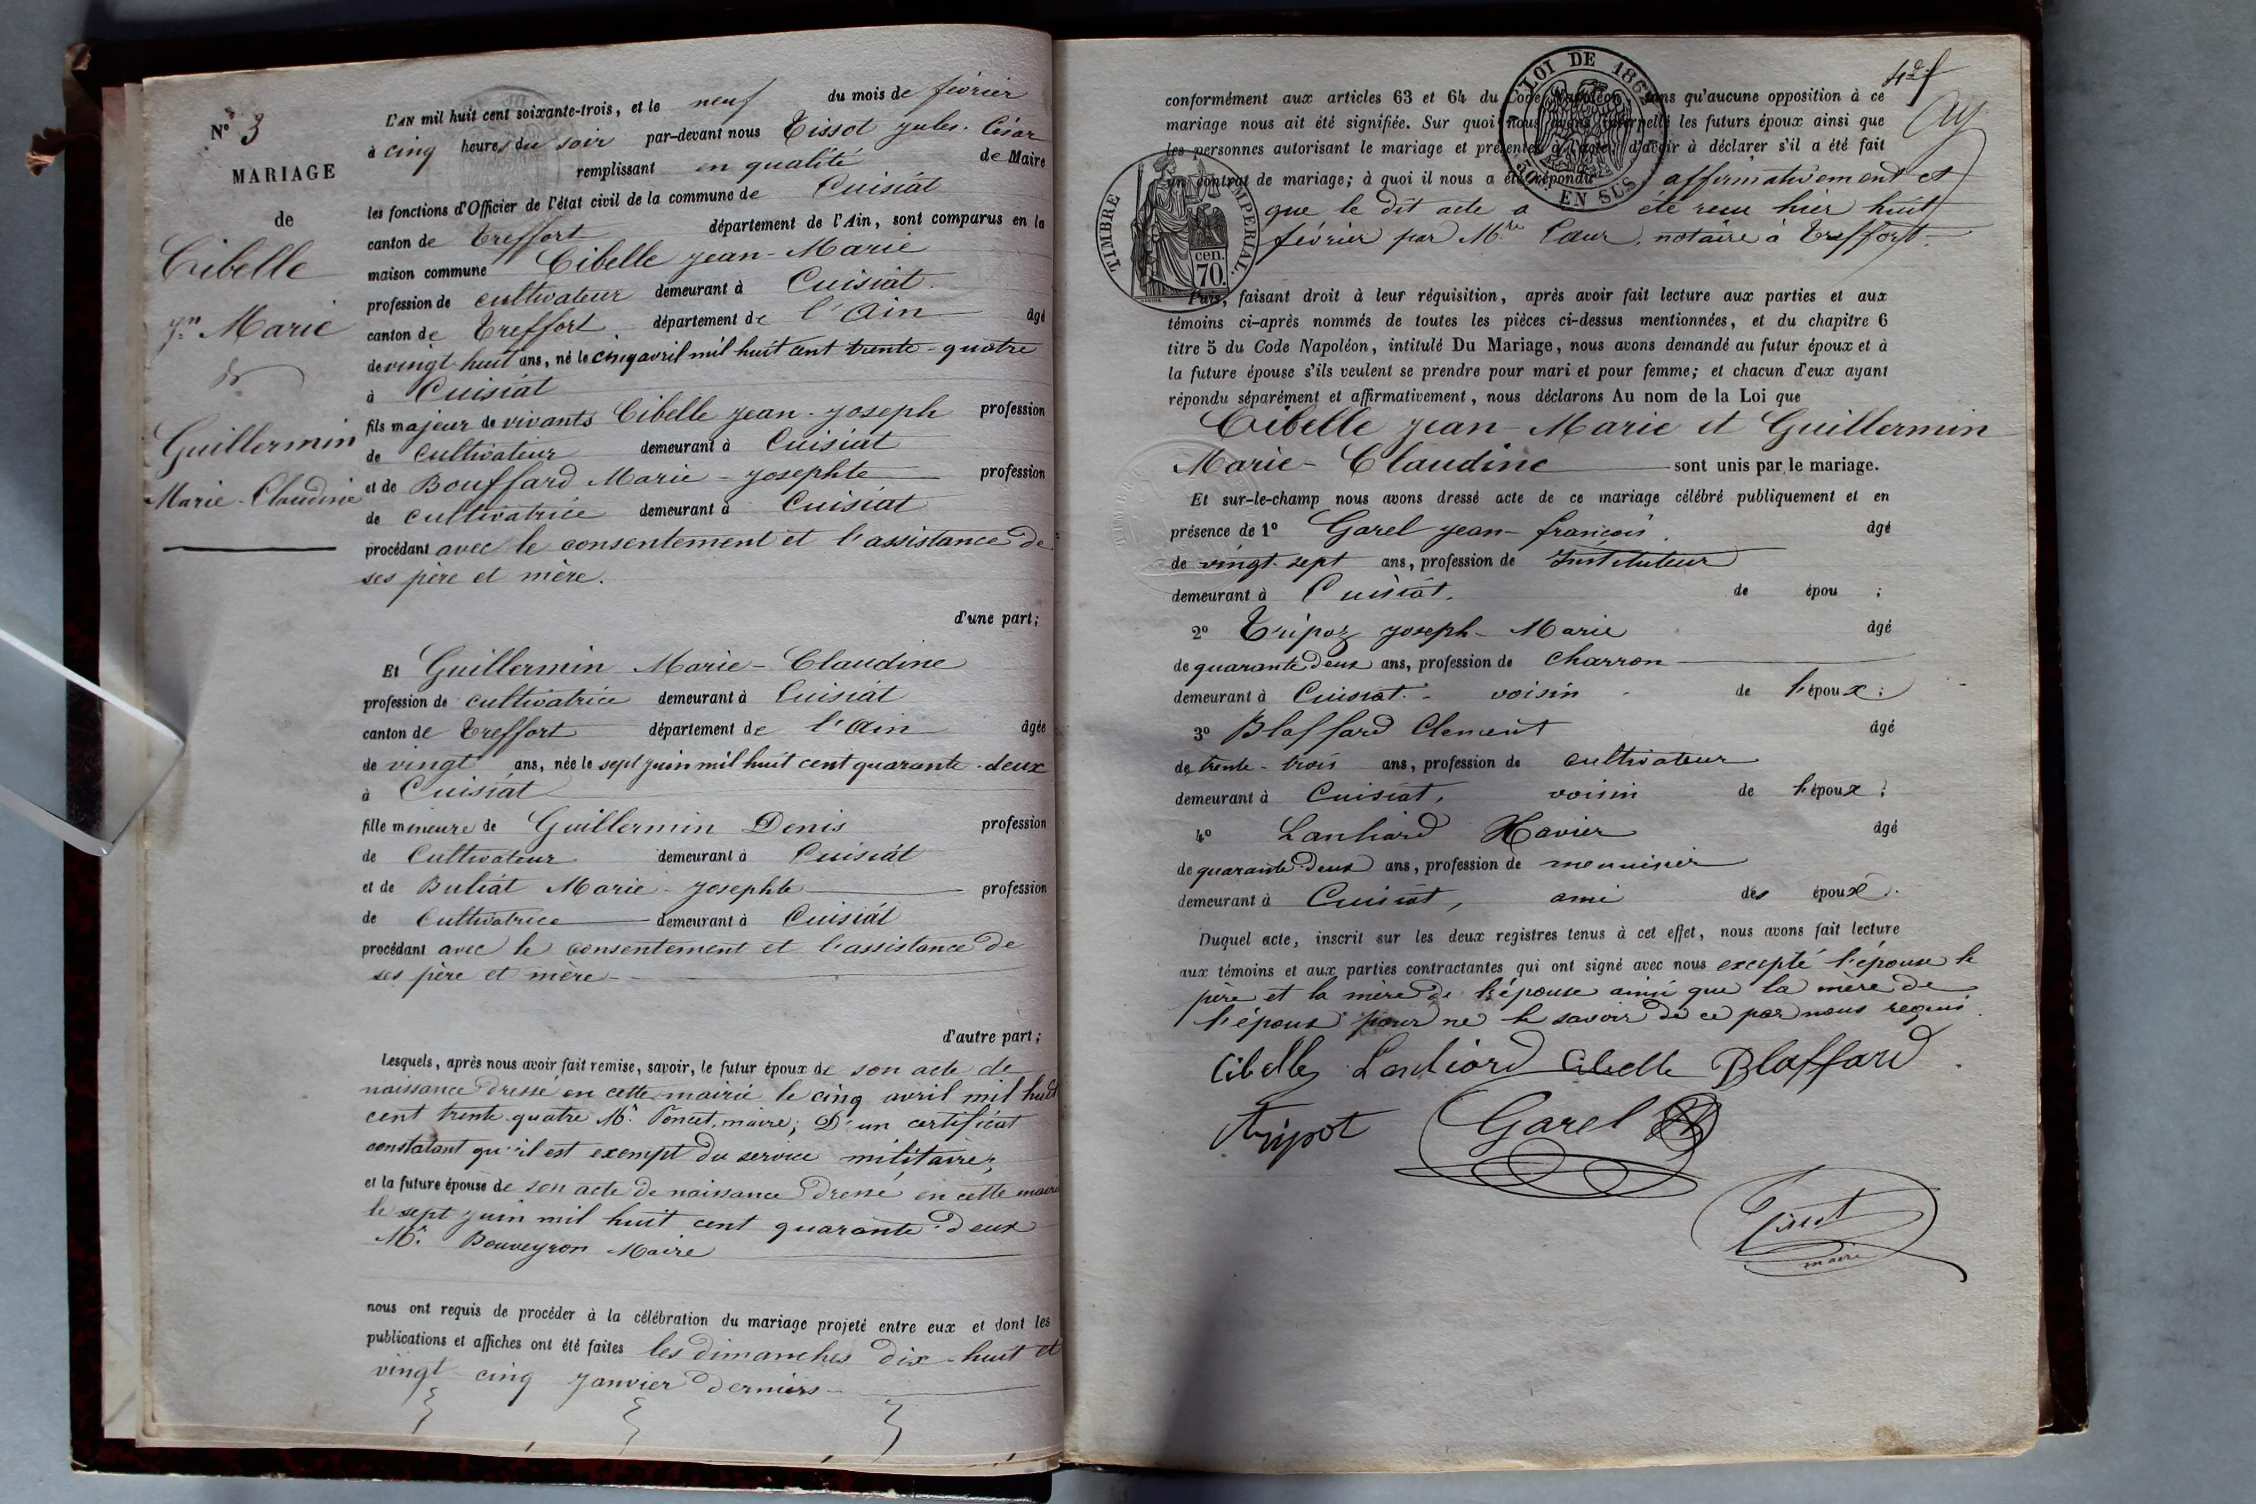 N° 3
MARIAGE
de
Cibelle
Jn Marie
&
Guillermin
Marie-Claudine
L'AN mil huit cent soixante-trois, et le neuf du mois de février
à cinq heures du soir par-devant nous Tissot Jules-César
remplissant en qualité de Maire
les fonctions d'Officier de l'état civil de la commune de Cuisiat
canton de Treffort département de l'Ain, sont comparus en la
maison commune Cibelle Jean-Marie
profession de cultivateur demeurant à Cuisiat.
canton de Treffort département de l'Ain âgé
de vingt huit ans, né le cinq avril mil huit cent trente-quatre
à Cuisiat
fils majeur de vivants Cibelle Jean-Joseph profession
de cultivateur demeurant à Cuisiat
et de Bouffard Marie-Josephte profession
de cultivatrice demeurant à Cuisiat
procédant avec le consentement et l'assistance de
ses père et mère.
d'une part;
Et Guillermin Marie-Claudine
profession de cultivatrice demeurant à Cuisiat
canton de Treffort département de l'Ain âgée
de vingt ans, née le sept juin mil huit cent quarante-deux
à Cuisiat
fille mineure de Guillermin Denis profession
de Cultivateur demeurant à Cuisiat
et de Buliat Marie-Josephte profession
de Cultivatrice demeurant à Cuisiat
procédant avec le consentement et l'assistance de
ses père et mère
d'autre part;
Lesquels, après nous avoir fait remise, savoir, le futur époux de son acte de
naissance dressé en cette mairie le cinq avril mil huit
cent trente-quatre Mr. Poncet, maire; D'un certificat
constatant qu'il est exempt du service militaire,
et la future épouse de son acte de naissance dressé en cette mairie
le sept juin mil huit cent quarante-deux
Mr. Bouveyron Maire
nous ont requis de procéder à la célébration du mariage projeté entre eux et dont les
publications et affiches ont été faites les dimanches dix-huit et
vingt-cinq janvier derniers
LOI DE 1862
EN SUS
TIMBRE IMPERIAL
70 cen.
conformément aux articles 63 et 64 du Code Napoléon, sans qu'aucune opposition à ce
mariage nous ait été signifiée. Sur quoi nous avons interpellé les futurs époux ainsi que
les personnes autorisant le mariage et présentes à l'acte, d'avoir à déclarer s'il a été fait
un contrat de mariage; à quoi il nous a été répondu affirmativement et
que le dit acte a été reçu hier huit
février par Mtre Cœur, notaire à Treffort.
Puis, faisant droit à leur réquisition, après avoir fait lecture aux parties et aux
témoins ci-après nommés de toutes les pièces ci-dessus mentionnées, et du chapitre 6
titre 5 du Code Napoléon, intitulé Du Mariage, nous avons demandé au futur époux et à
la future épouse s'ils veulent se prendre pour mari et pour femme; et chacun d'eux ayant
répondu séparément et affirmativement, nous déclarons Au nom de la Loi que
Cibelle Jean-Marie et Guillermin
Marie-Claudine sont unis par le mariage.
Et sur-le-champ nous avons dressé acte de ce mariage célébré publiquement et en
présence de 1° Garel Jean-françois. âgé
de vingt-sept ans, profession de Instituteur
demeurant à Cuisiat. de épou ;
2° Tripoz Joseph-Marie âgé
de quarante deux ans, profession de charron
demeurant à Cuisiat. voisin de l'époux;
3° Blaffard Clement âgé
de trente-trois ans, profession de cultivateur
demeurant à Cuisiat, voisin de l'époux;
4° Lanliard Xavier âgé
de quarante deux ans, profession de menuisier
demeurant à Cuisiat, ami des époux.
Duquel acte, inscrit sur les deux registres tenus à cet effet, nous avons fait lecture
aux témoins et aux parties contractantes qui ont signé avec nous excepté l'épouse le
père et la mère de l'épouse ainsi que la mère de
l'époux pour ne le savoir de ce par nous requis.
Cibelle Lanliard Cibelle Blaffard
Tripot Garel
Tissot
maire